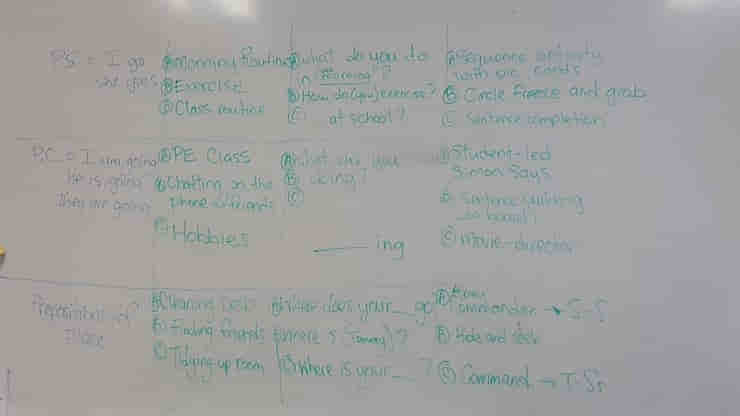 PS = I go
she goes
Ⓐ Morning Routine
Ⓑ Exercise
Ⓒ Class routine
Ⓐ What do you do
in morning?
Ⓑ How do (you) exercise?
Ⓒ at school?
Ⓐ Sequence activity
with pic cards
Ⓑ Circle Freeze and grab
Ⓒ Sentence completion
P.C = I am going
he is going
they are going
Ⓐ PE Class
Ⓑ Chatting on the
phone friends
Ⓒ Hobbies
Ⓐ What are you
Ⓑ doing?
Ⓒ
____ing
Ⓐ Student-led
Simon Says
Ⓑ Sentence
to board
Ⓒ Movie-director
Prepositions of
Place
Ⓐ Cleaning
Ⓑ Finding friends
Ⓒ Tidying up room
Ⓐ Where does your ___ go
Ⓑ Where is (Tommy)?
Ⓒ Where is your ___?
Ⓐ Army
Commander → S-S
Ⓑ Hide and seek
Ⓒ Command → T-Ss